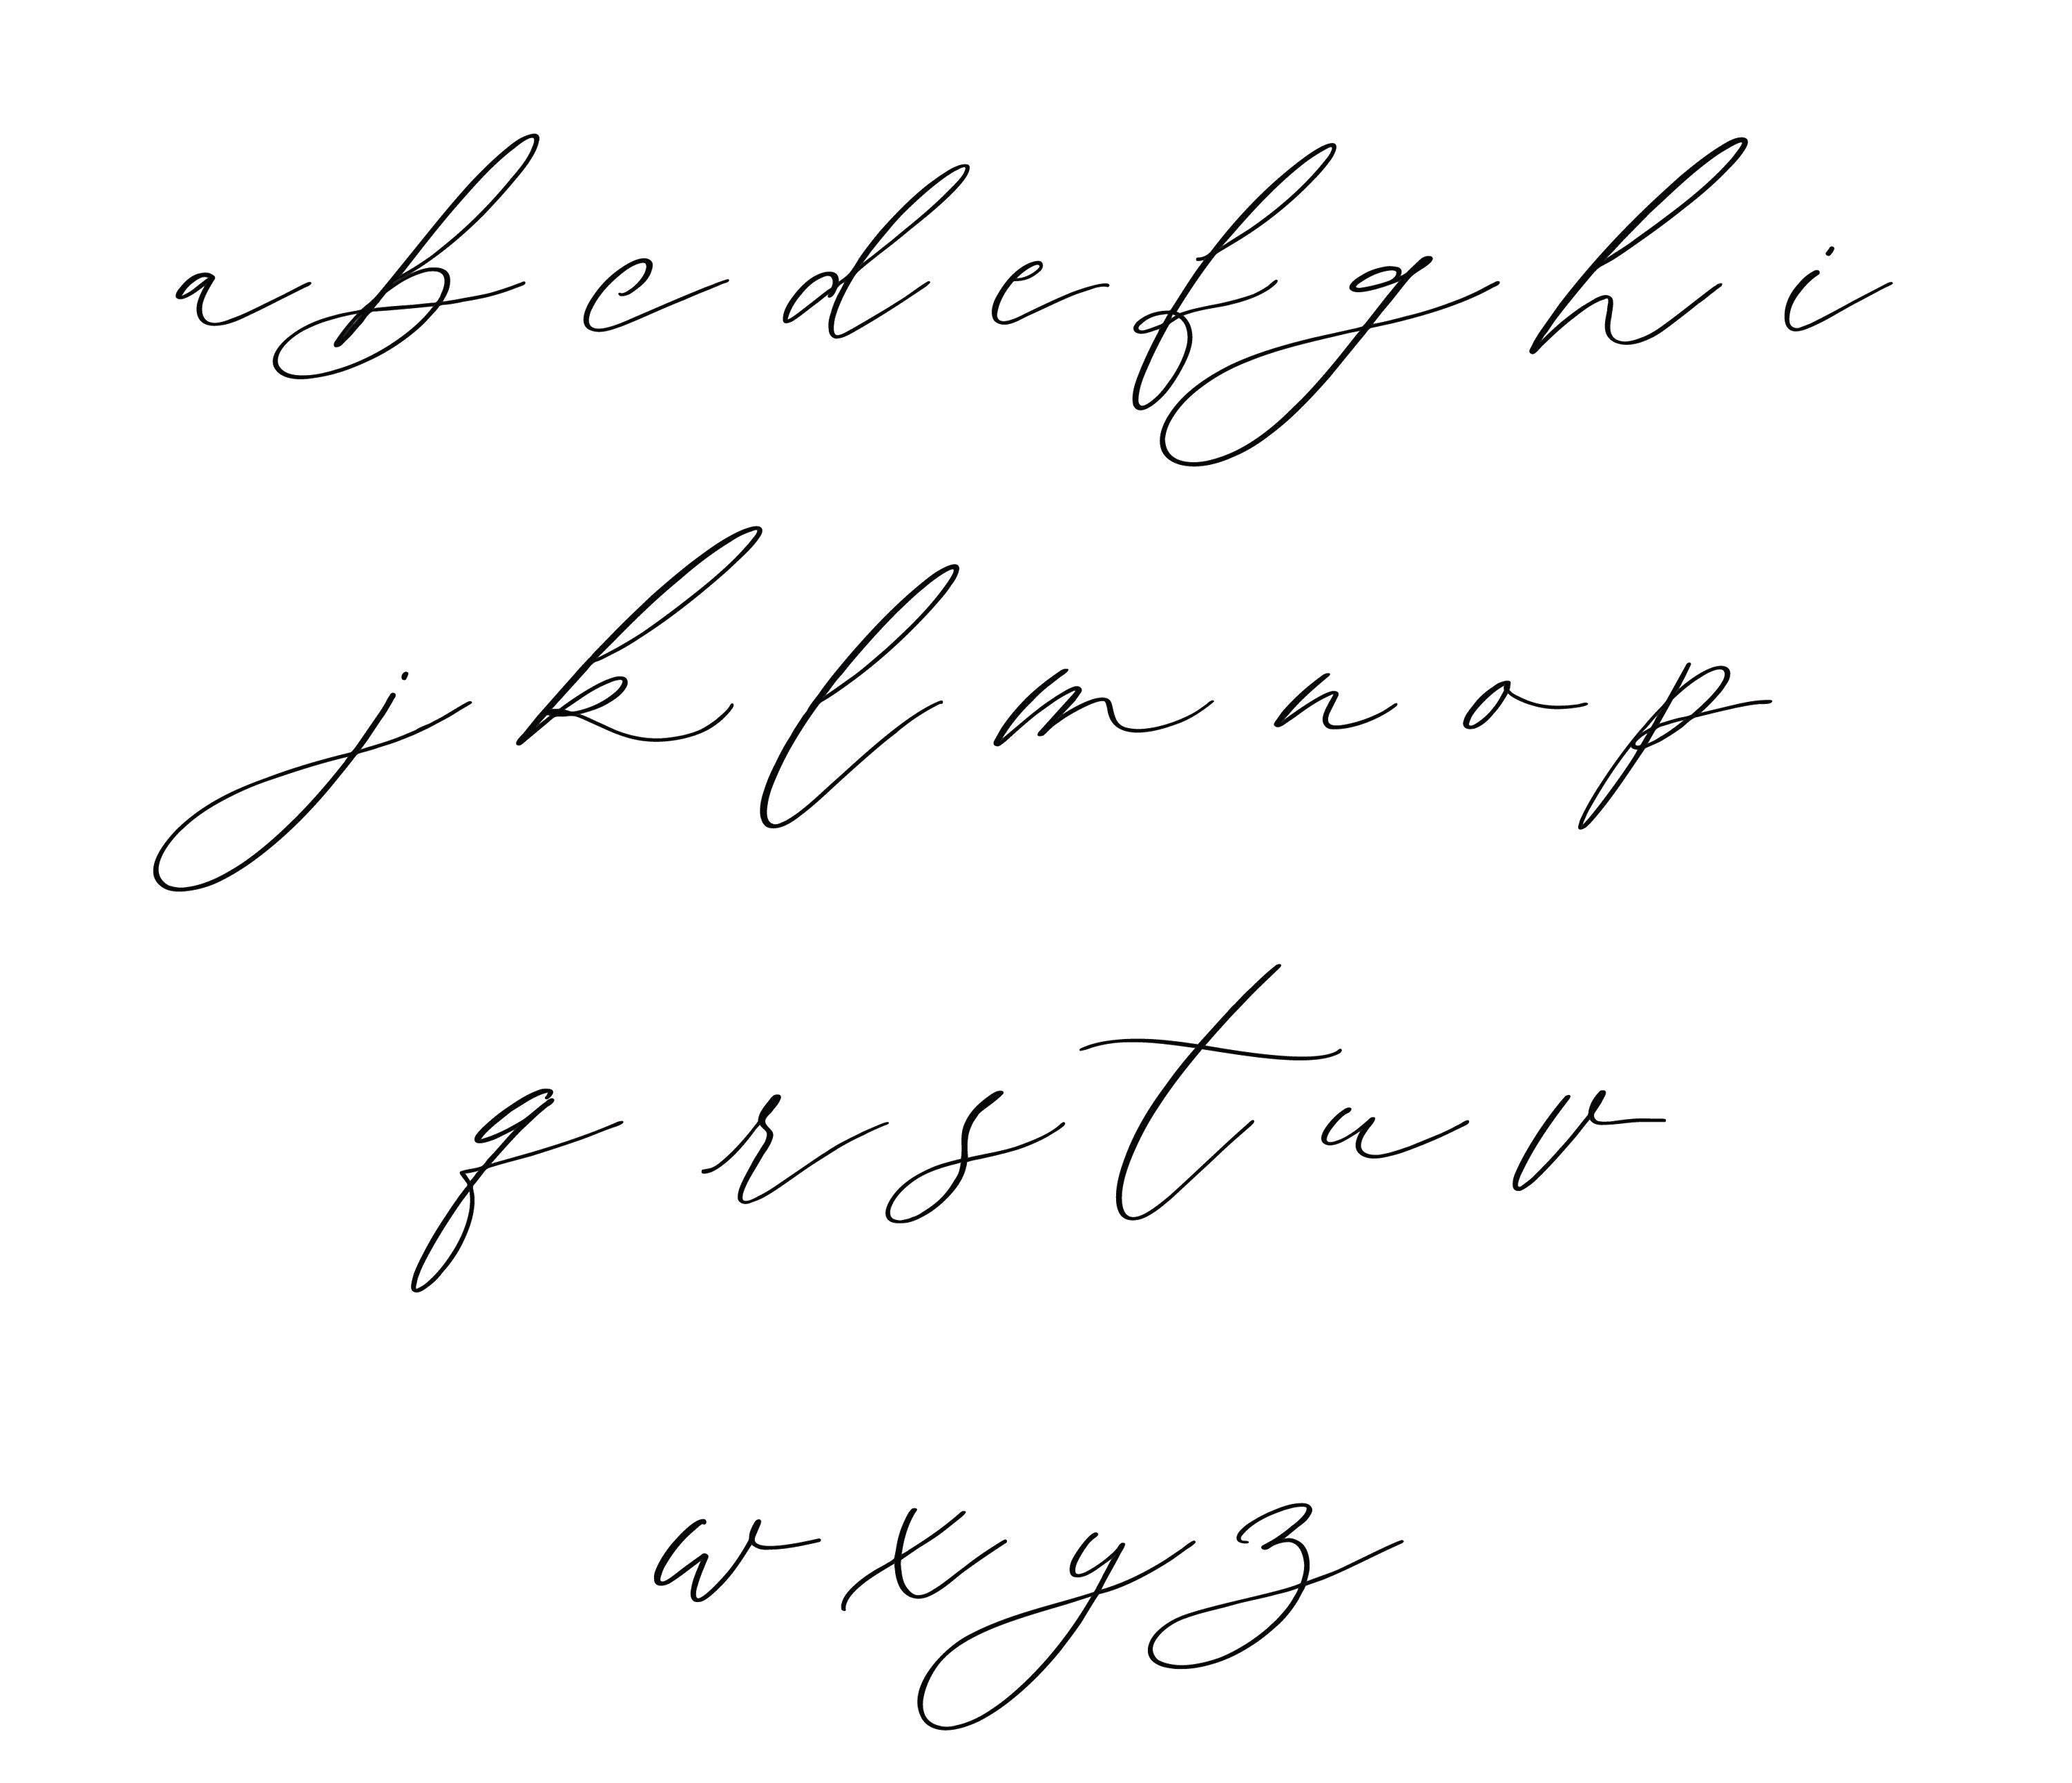 a b c d e f g h i
j k l m n o p
q r s t u v
w x y z